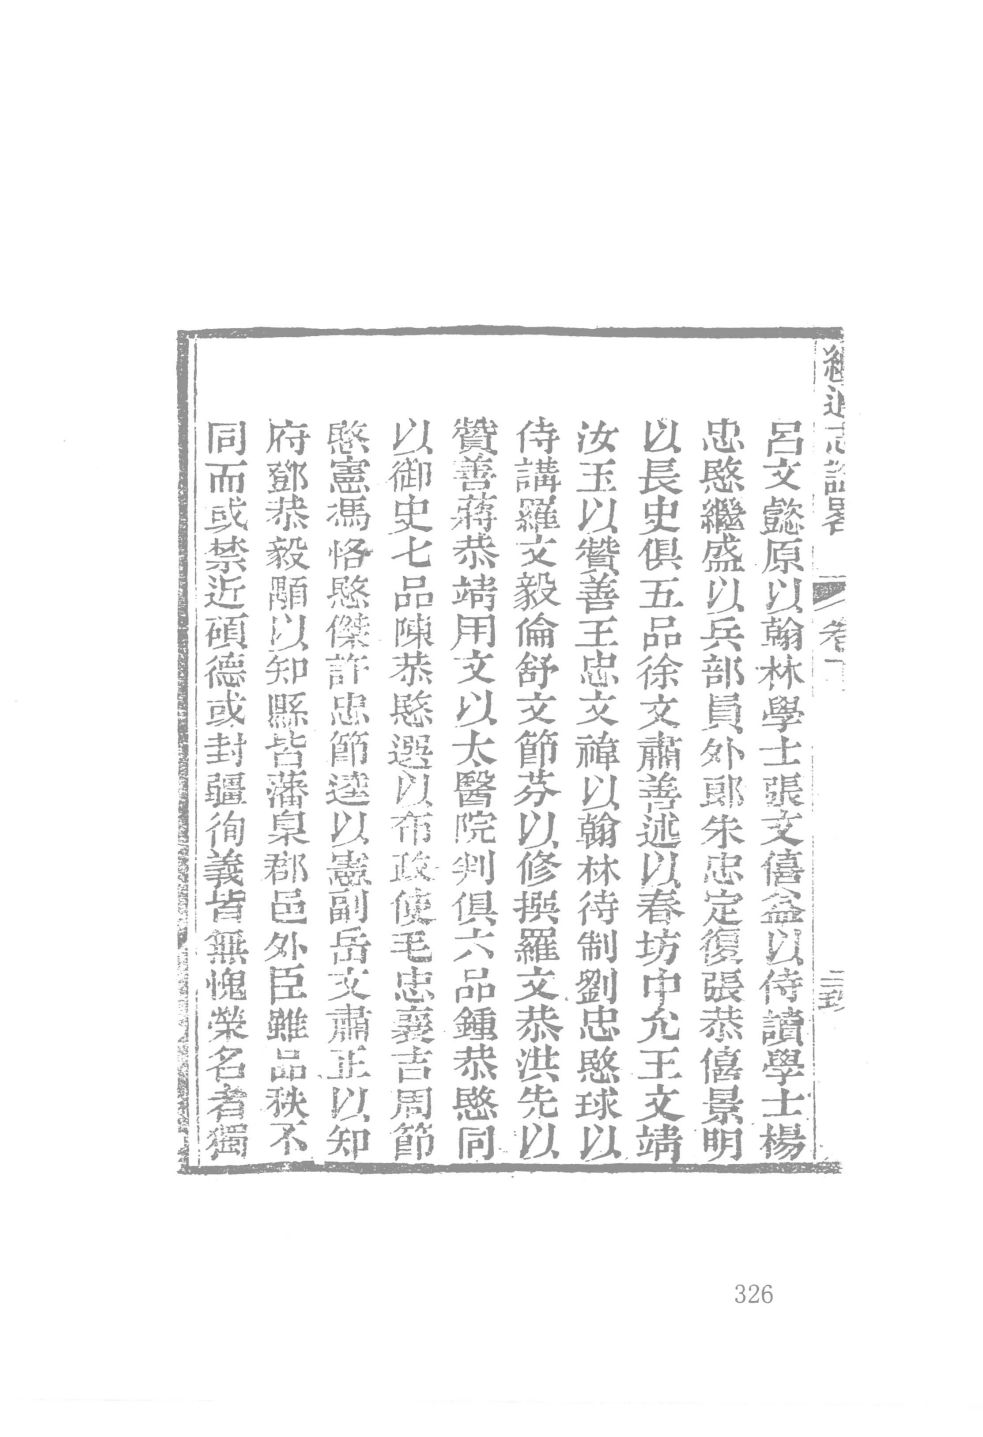 續通志諡畧
卷下
呂文懿原以翰林學士張文僖益以侍讀學士楊
忠愍繼盛以兵部員外郎朱忠定復張恭僖景明
以長史俱五品徐文肅善述以春坊中允王文靖
汝玉以贊善王忠文禕以翰林待制劉忠愍球以
侍講羅文毅倫舒文節芬以修撰羅文恭洪先以
贊善蔣恭靖用文以太醫院判俱六品鍾恭愍同
以御史七品陳恭愍選以布政使毛忠襄吉周節
愍憲馮恪愍傑許忠節逵以憲副岳文肅正以知
府鄧恭毅顒以知縣皆藩臬郡邑外臣雖品秩不
同而或禁近碩德或封疆徇義皆無愧榮名者獨
326